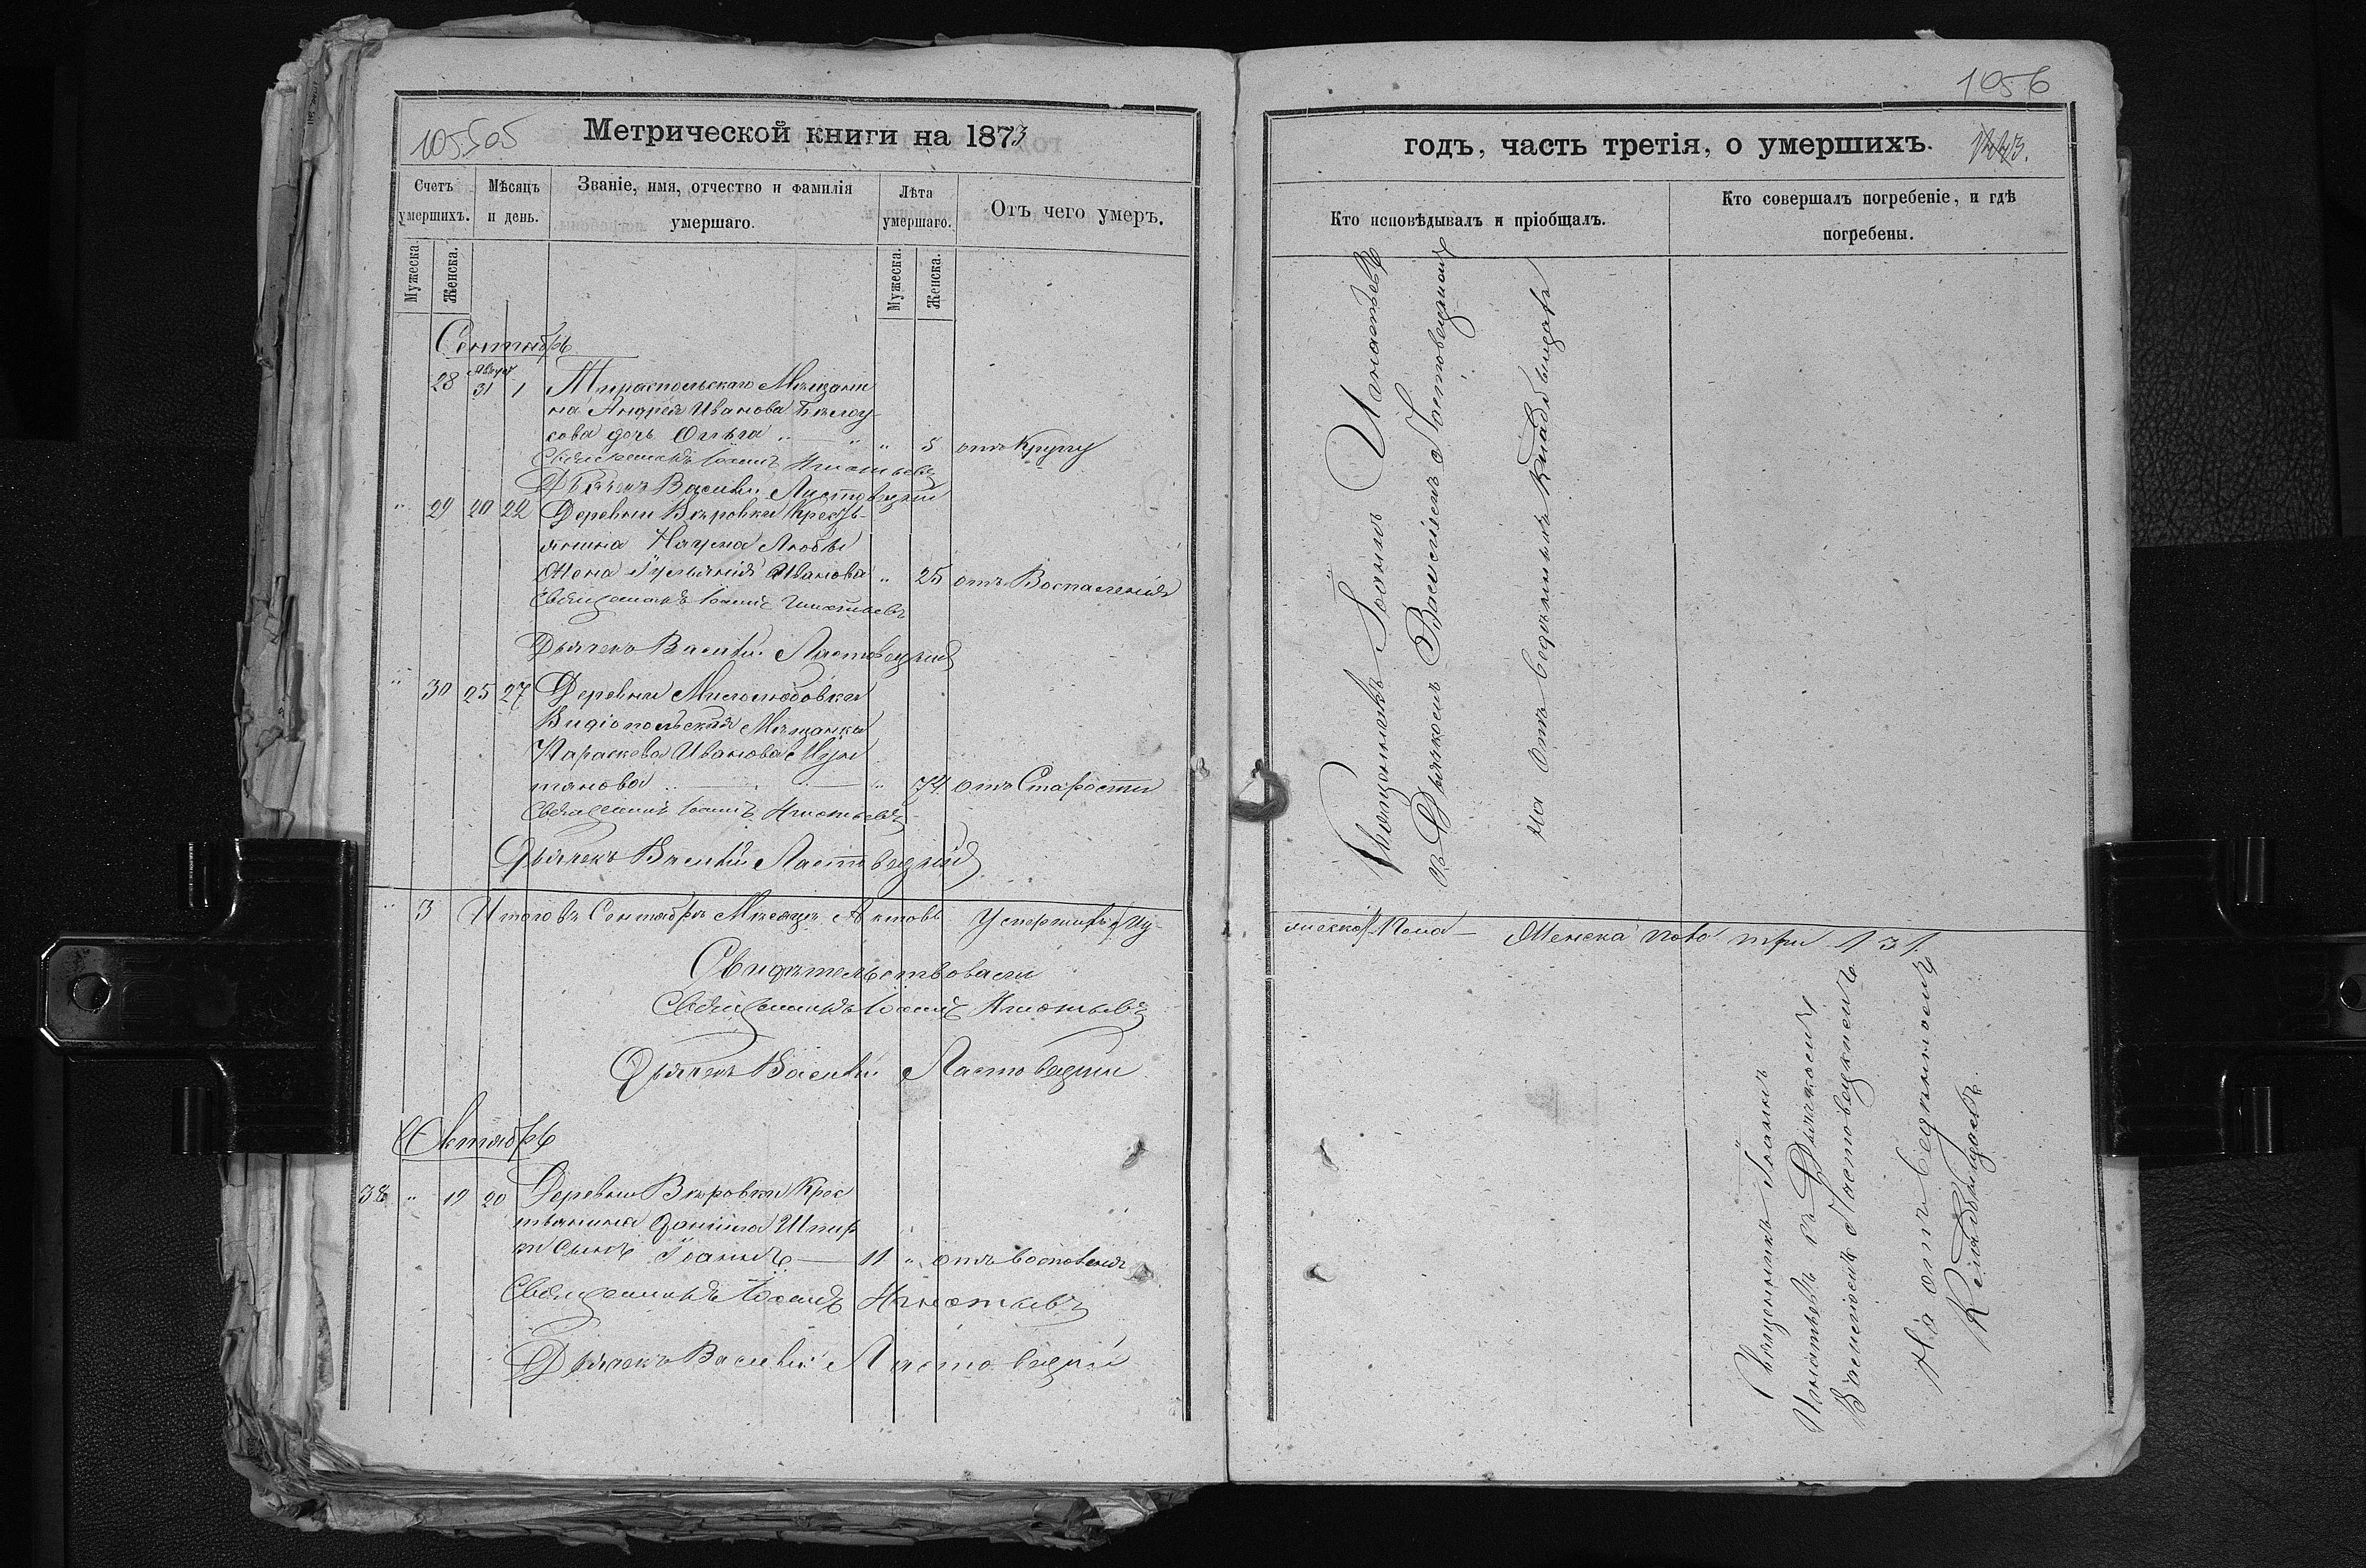 105505
Метрической книги на 1873
Счетъ умершихъ.
Мужеска.
Женска.
Мѣсяцъ и день.
Званіе, имя, отчество и фамилія умершаго.
Лѣта умершаго.
Мужеска.
Женска.
Отъ чего умеръ.
Сентябрь
28 Август 31 1 Тираспольскаго Мѣщани
на Андрея Иванова Бѣлоу-
сова дочь Ольга „ 5 отъ Крупу
Священникъ Іоаннъ Игнатьевъ
Дьячекъ Василій Ластовецкій
„ 29 20 22 Деревни Вѣровки Кресть-
янина Наума Любы
Жена Іуліанія Иванова „ 25 отъ Воспаленія
Священникъ Іоаннъ Игнатьевъ
Дьячекъ Василій Ластовецкій
„ 30 25 27 Деревни Милолюбовки
Видіопольская Мѣщанка
Параскева Иванова Мун
тянова „ 74 отъ Старости
Священникъ Іоаннъ Игнатьевъ
Дьячекъ Василій Ластовецкій
„ 3 Итого въ Сентябрѣ Мѣсяцѣ Актовъ Умершихъ Му-
Свидѣтельствовали
Священникъ Іоаннъ Игнатьевъ
Дьячекъ Василій Ластовецкій
Октябрь
38 „ 19 20 Деревни Вѣровки Крес
тьянина Даніила
сынъ Іоаннъ 11 „ отъ
Священникъ Іоаннъ Игнатьевъ
Дьячекъ Василій Ластовецкій
1056
годъ, часть третія, о умершихъ.
Кто исповѣдывалъ и пріобщалъ.
Кто совершалъ погребеніе, и гдѣ погребены.
Священникъ Іоаннъ Игнатьевъ
съ Дьячкомъ Василіемъ Ластовецкимъ
на отъ веденномъ кладбищѣ
жеска Пола — Женска пола три 3
Священникъ Іоаннъ
Игнатьевъ съ Дьячкомъ
Василіемъ Ластовецкимъ
На отъ веденномъ
Кладбищѣ